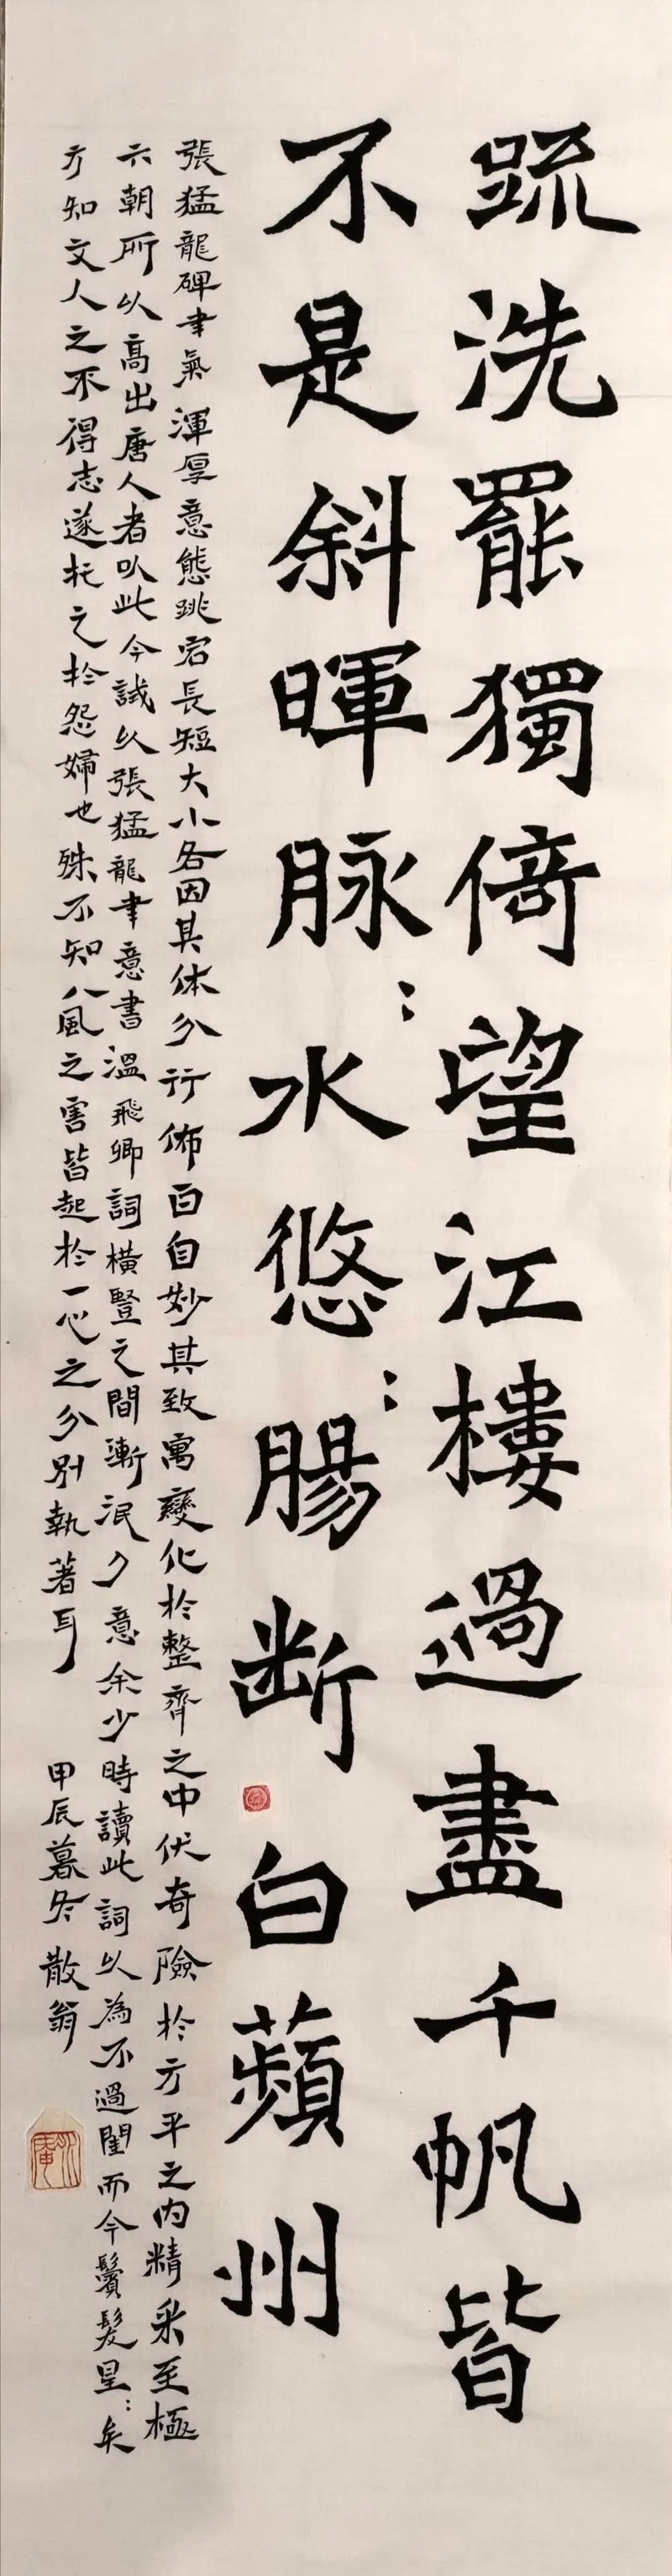 疏洗罷獨倚望江樓過盡千帆皆
不是斜暉脉:水悠:腸断白蘋州
張猛龍碑聿氣渾厚意態跳宕長短大小各因其体分行佈白自妙其致寓變化於整齊之中伏奇險於方平之内精采至極
六朝所以高出唐人者以此今試以張猛龍聿意書溫飛卿詞橫豎之間漸泯刀意余少時讀此詞以為不過閨而今鬢髮星:矣
方知文人之不得志遂托之於怨婦也殊不知八風之害皆起於一心之分別執著耳
甲辰暮冬散翁